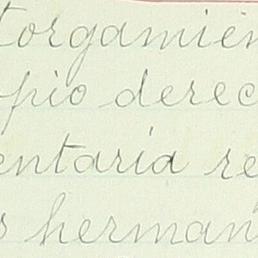 torgamien
opio derec
entaria re
s herman